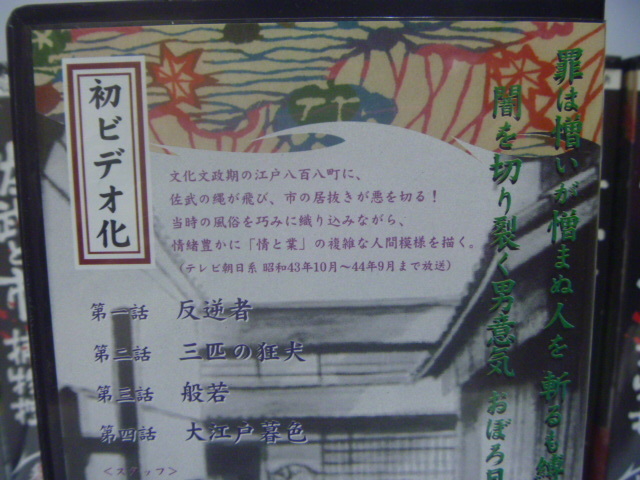 罪は憎いが憎まぬ人を 斬るも縛
闇を切り裂く男意気 おぼろ月
初ビデオ化
文化文政期の江戸八百八町に、
佐武の縄が飛び、市の居抜きが悪を切る!
当時の風俗を巧みに織り込みながら、
情緒豊かに「情と業」の複雑な人間模様を描く。
(テレビ朝日系 昭和43年10月〜44年9月まで放送)
第一話 反逆者
第二話 三匹の狂犬
第三話 般若
第四話 大江戸暮色
<スタッフ>